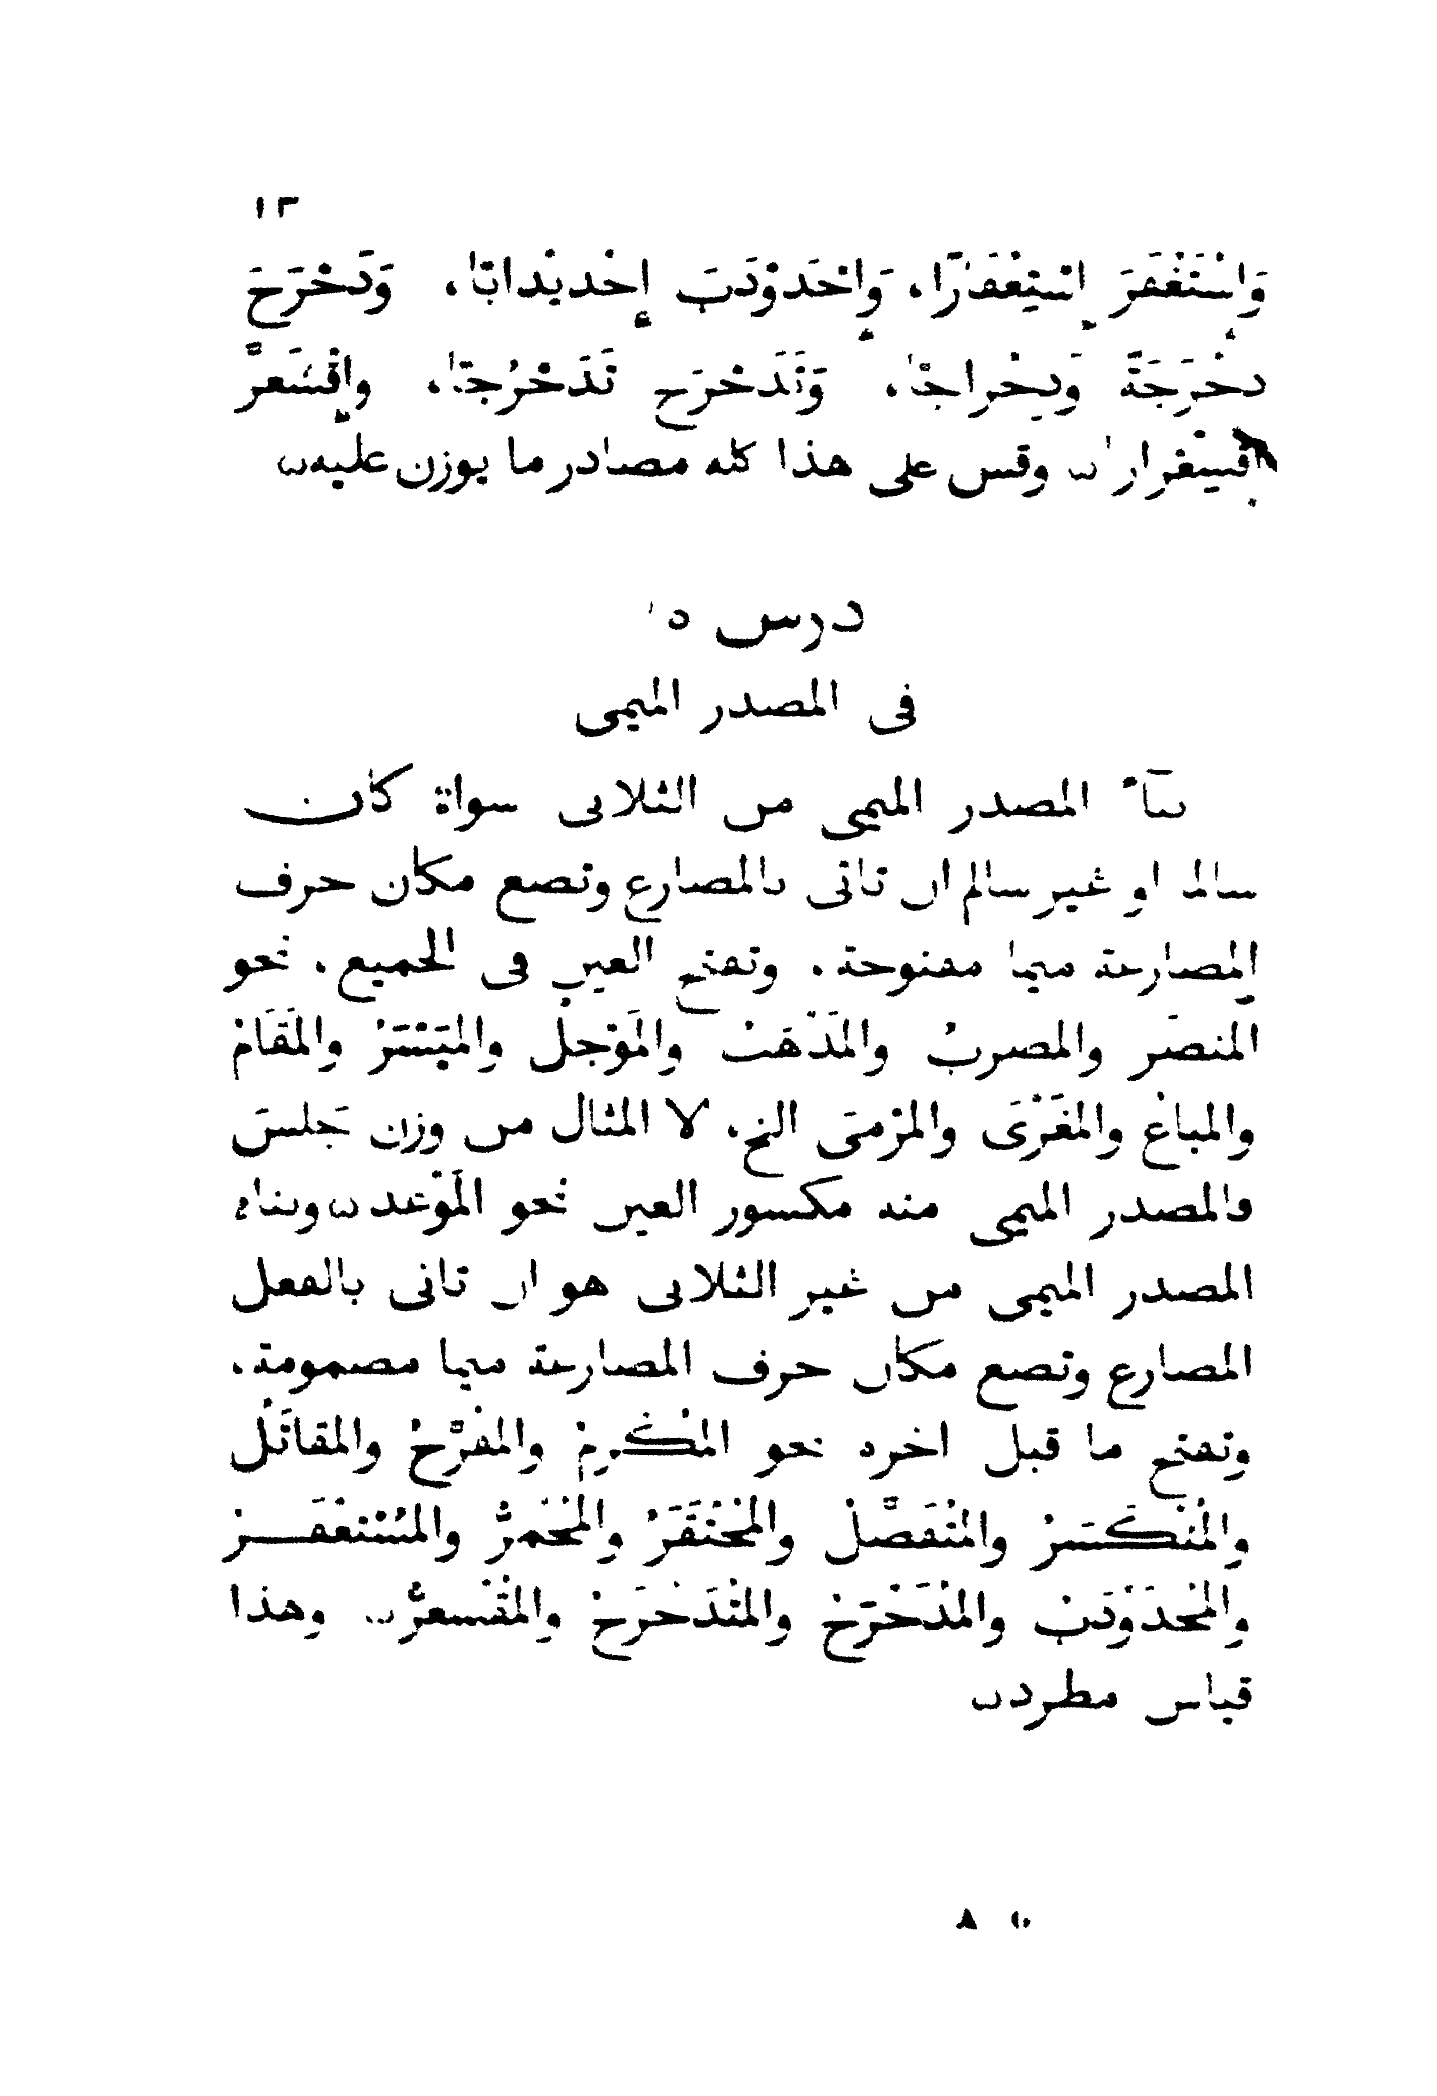 ١٣
وَاسْتَغْفَرَ اِسْتِغْفَارًا، وَاحْدَوْدَبَ إِحْدِيْدابًا، وَدَحْرَجَ
دَحْرَجَةً وَدِحْراجًا، وَتَدَحْرَج تَدَحْرُجًا، واقْشَعَرَّ
اقشِعْرارا وقس على هذا كله مصادر ما يوزن عليه
درس ٥
فى المصدر الميمى
بنآء المصدر الميمى من الثلاثى سواء كان
سالما او غير سالم ان تاتى بالمضارع وتضع مكان حرف
المضارعة ميما مفتوحة. وتفتح العين فى الجميع. نحو
المنصَر والمضرب والمَذْهَب والمَوْجل والمَيْسَر والمَقَام
والمباع والمَغْزَى والمَرْمَى الخ. لا المثال من وزن جَلسَ
فالمصدر الميمى منه مكسور العين نحو المَوْعد وبناء
المصدر الميمى من غير الثلاثى هو ان تاتى بالفعل
المضارع وتضع مكان حرف المضارعة ميما مضمومة.
وتفتح ما قبل اخره نحو المُكْرم والمفرَّح والمقاتَل
والمُنْكَسَر والمُتَفَضَّل والمُحْتَقَر والمُحْمَرّ والمُسْتغْفَـر
والمُحدَوْدَب والمُدَحْرَج والمُتَدَحْرَج والمُقْشعرّ وهذا
قياس مطرد
٨